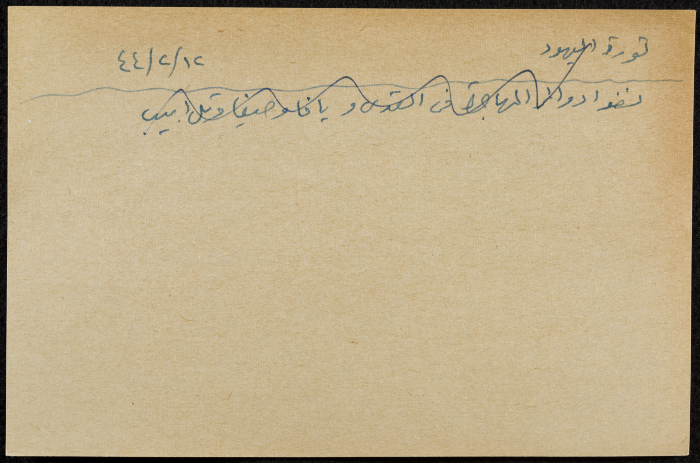 ثورة اليهود
٤٤/٢/١٢
نسفوا دوائر المهاجرة في القدس و يافا و حيفا و تل ابيب